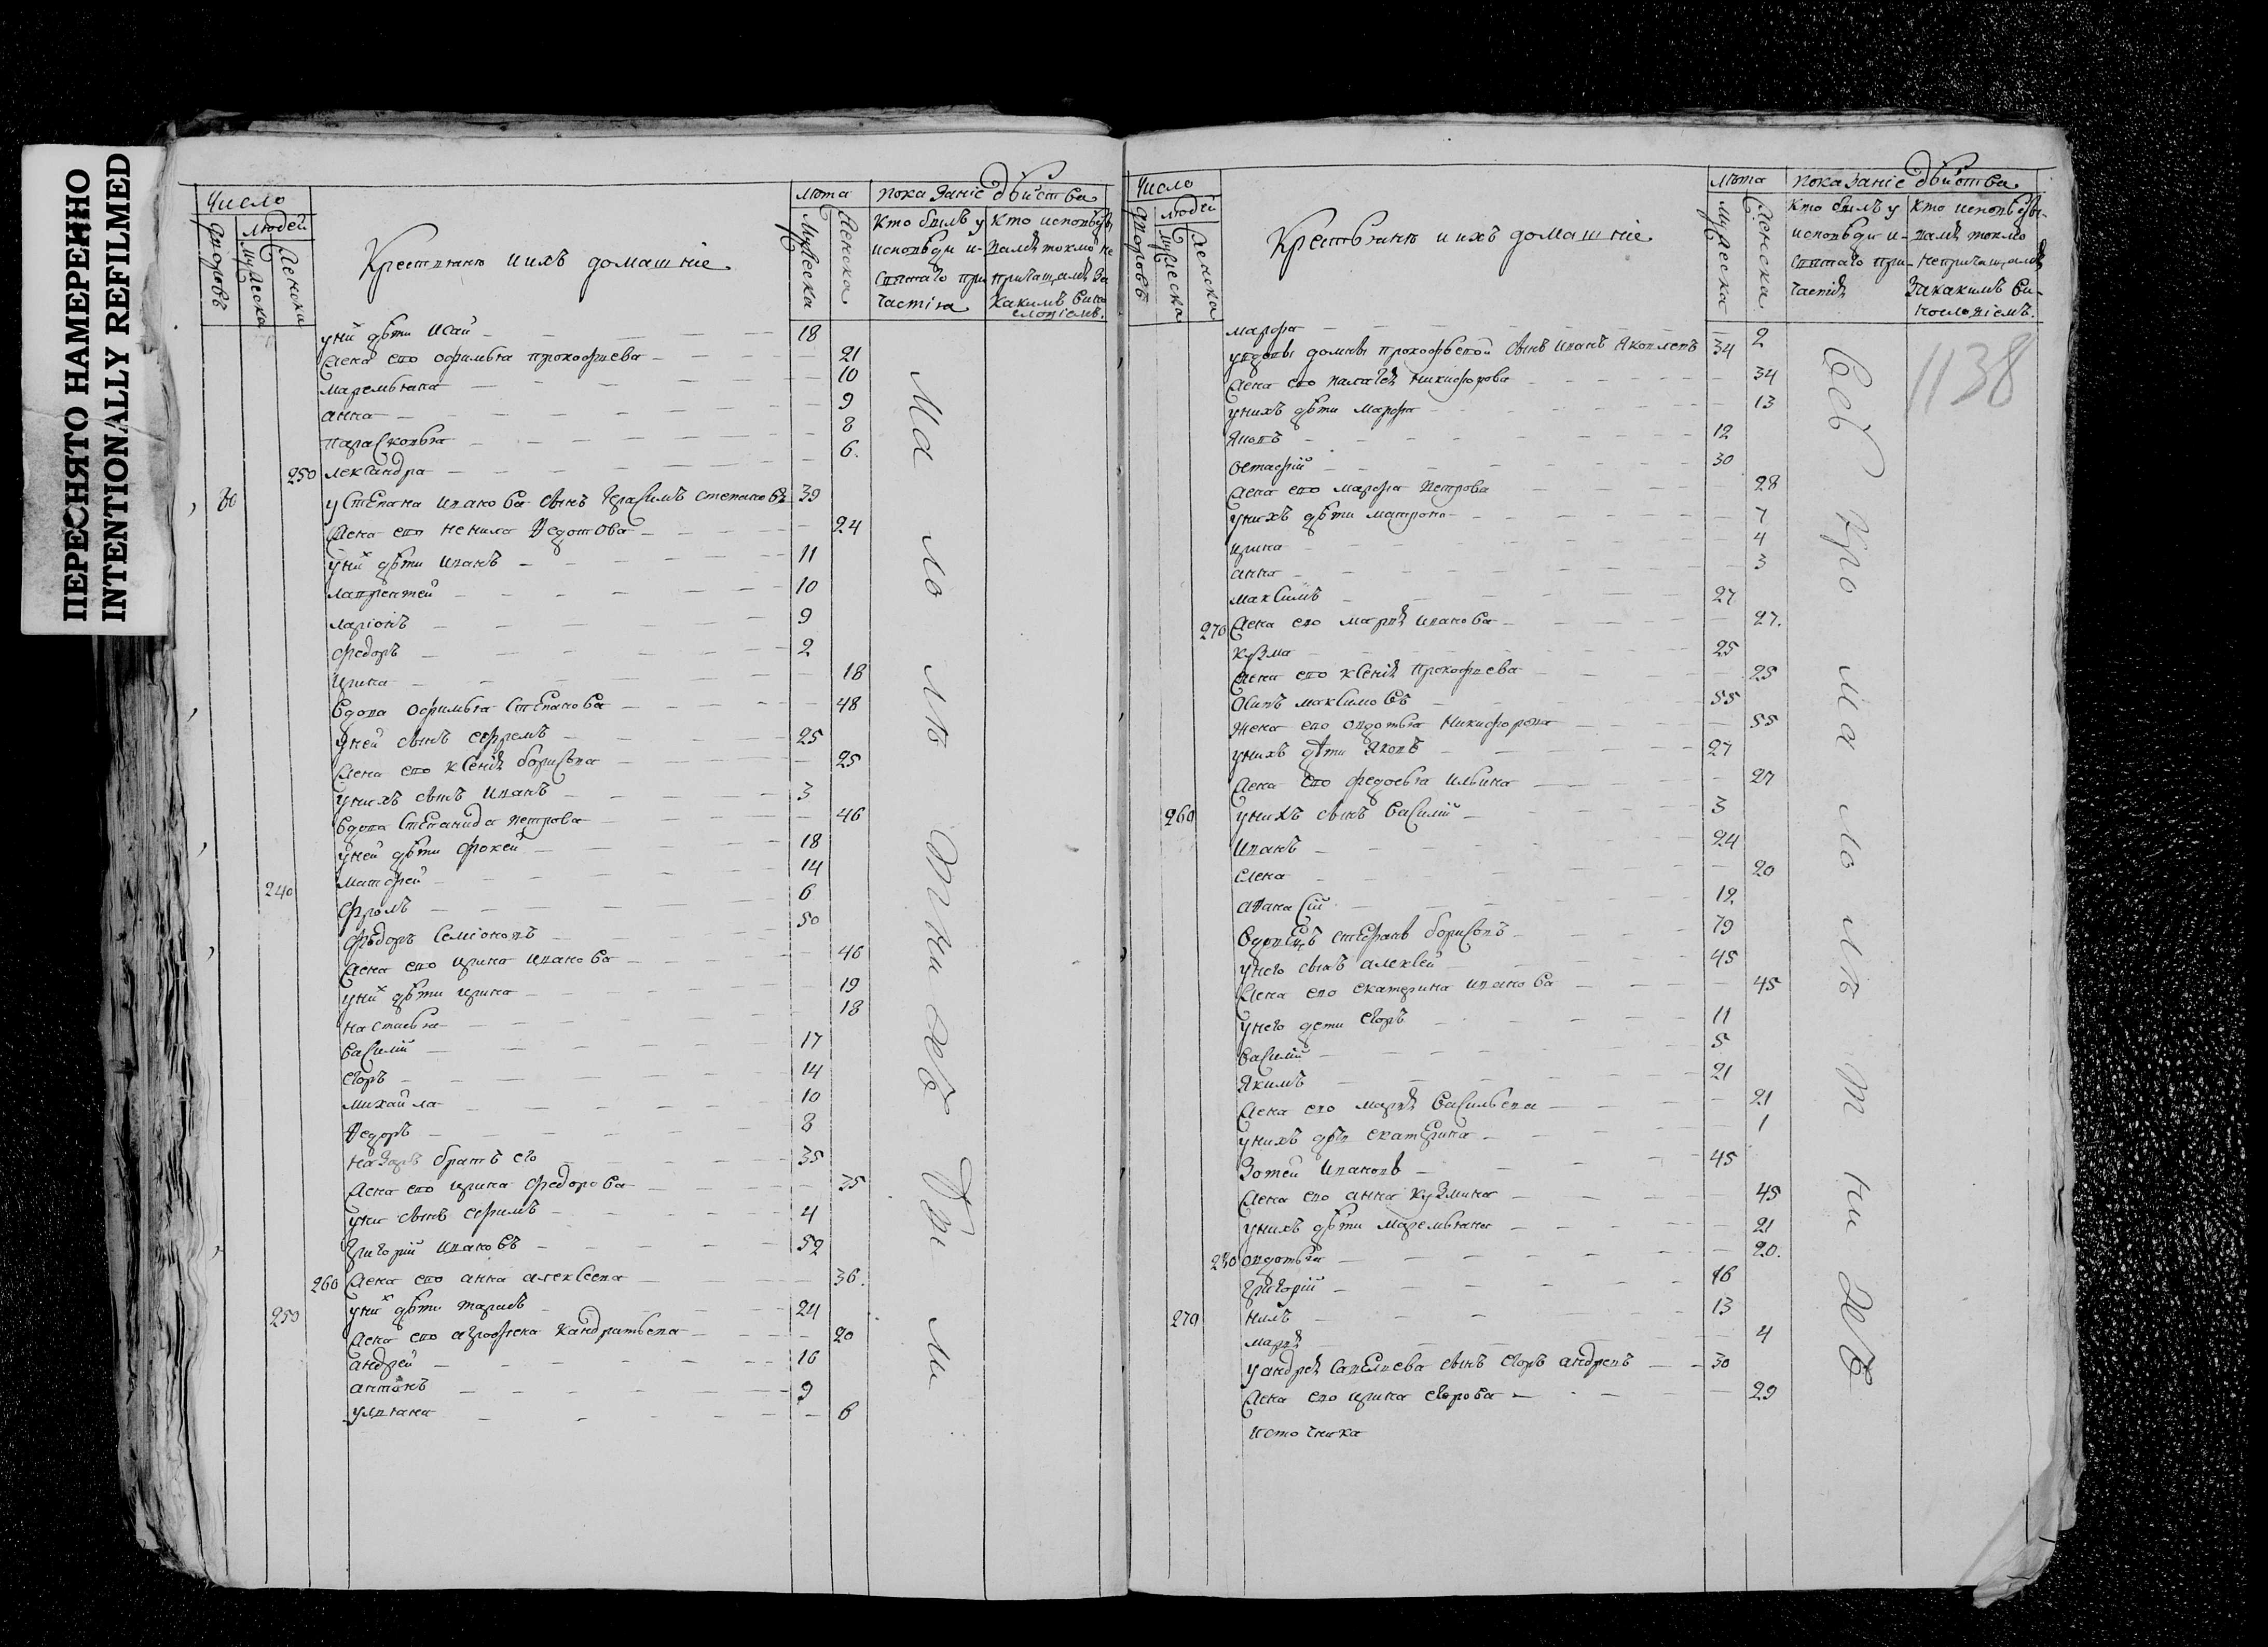 ПЕРЕСНЯТО НАМЕРЕННО
INTENTIONALLY REFILMED
Число
людей
дворовъ
мужеска
женска
Крестьяня и ихъ домашніе
Лѣта
мужеска
женска
показаніе дѣйства
Кто былъ у исповѣди и святаго причастія
Кто исповѣдывался токмо не причащался за какимъ винословіемъ.
у них дѣти Исай 18
жена ево офимья прокофиева 21
маремьяна 10
анна 9
парасковья 8
250 лександра 6.
80 у степана иванова сынъ герасимъ степановъ 39
жена ево ненила Ѳедотова 24
у них дѣти иванъ 11
лаврентей 10
ларіонъ 9
федоръ 2
ирина 18
вдова офимья степанова 48
у ней сынъ ефремъ 25
жена ево ксенія борисова 25
у нихъ сынъ иванъ 3
вдова степанида петрова 46
у ней дѣти фокей 18
матфей 14
240 фролъ 6
фѣдоръ семіоновъ 50
жена ево ирина иванова 46
у них дѣти ирина 19
настасья 18
василій 17
егоръ 14
михайла 10
Ѳедоръ 8
назаръ братъ его 35
жена ево ирина федорова 35
у них сынъ ефимъ 4
григорій ивановъ 52
260 жена ево анна алексеева 36.
250 у них дѣти тарасъ 24
жена ево аграфена кандратьева 20
андрей 16
антонъ 9
ульяна 6
Малолѣтнихъ Дѣтми
Число
людей
дворовъ
мужеска
женска
Крестьяня и ихъ домашніе
Лѣта
мужеска
женска
показаніе дѣйства
Кто былъ у исповѣди и святаго причастія
Кто исповѣдывался токмо не причащался за какимъ винословіемъ.
1138
марфа 2
у вдовы домны прокофьевой сынъ иванъ яковлевъ 34
жена ево палагѣя никифорова 34
у нихъ дѣти марфа 13
яковъ 12
остафій 30
жена ево марфа петрова 28
у нихъ дѣти матрона 7
ирина 4
анна 3
максимъ 27
270 жена ево марія иванова 27.
кузма 25
жена ево ксенія прокофиева 25
осипъ максимовъ 55
жена ево авдотья никифорова 55
у нихъ дѣти яковъ 27
жена ево федосья ильина 27
260 у нихъ сынъ василій 3
иванъ 24
елена 20
аѳанасій 12
вдовецъ стефанъ борисовъ 79
у него сынъ алексей 45
жена ево екатерина иванова 45
у него дети егоръ 11
василій 5
якимъ 21
жена ево марія васильева 21
у нихъ дѣти екатерина 1
зотей ивановъ 45
жена ево анна кузмина 45
у нихъ дѣти маремьяна 21
280 авдотья 20.
григорій 16
270 нилъ 13
марія 4
у андрея савелиева сынъ егоръ андреевъ 30
жена ево ирина егорова 29
Всѣ Кро Малолѣтнихъ